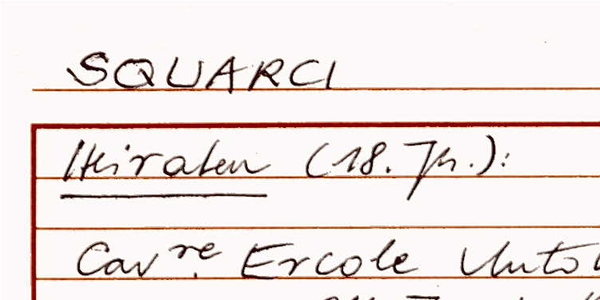 SQUARCI
Heiraten (18. Jh.):
Cav.re Ercole